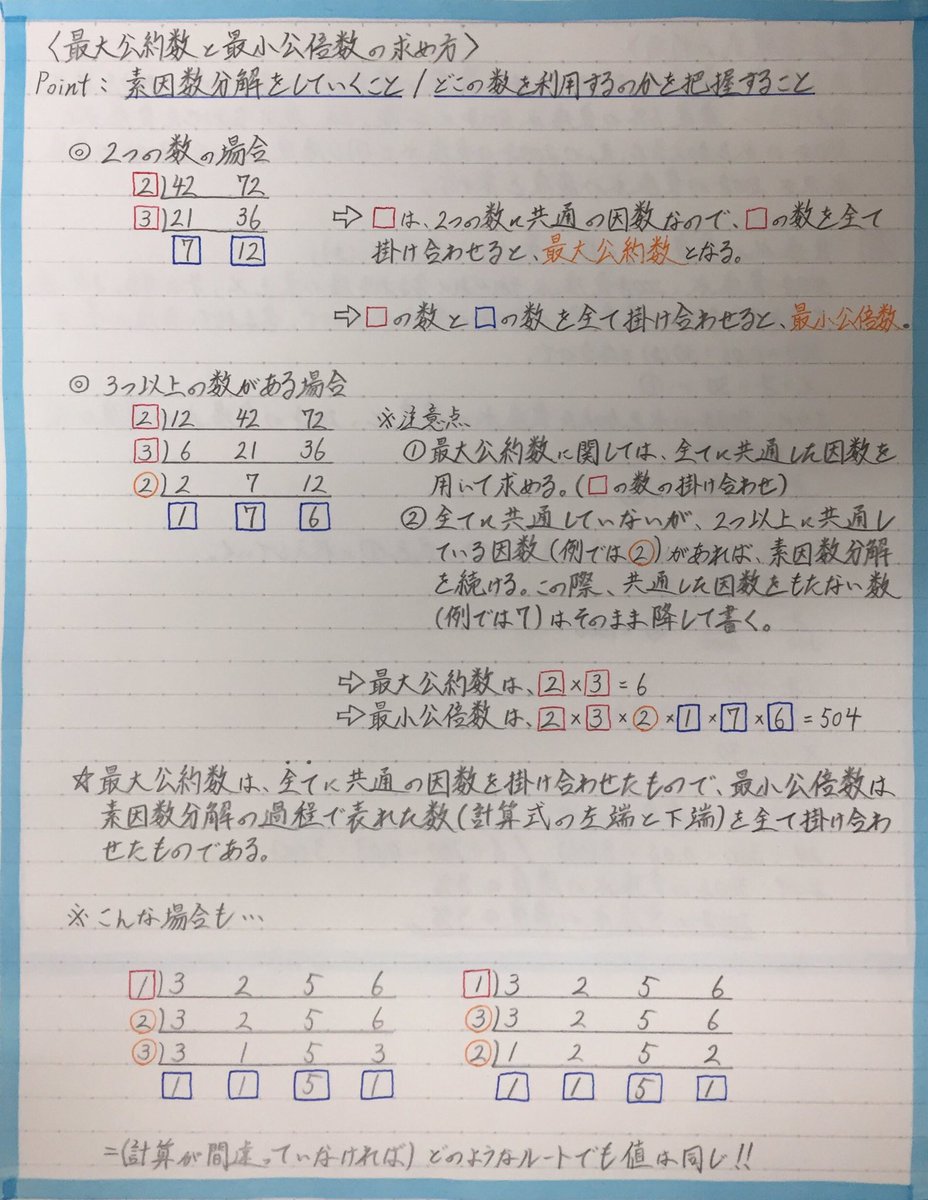 〈最大公約数と最小公倍数の求め方〉
Point：素因数分解をしていくこと / どこの数を利用するのかを把握すること
◎ 2つの数の場合
2 ) 42 72
3 ) 21 36
7 12
⇨ □は、2つの数に共通の因数なので、□の数を全て
掛け合わせると、最大公約数となる。
⇨ □の数と□の数を全て掛け合わせると、最小公倍数。
◎ 3つ以上の数がある場合
2 ) 12 42 72
3 ) 6 21 36
② ) 2 7 12
1 7 6
※注意点
① 最大公約数に関しては、全てに共通した因数を
用いて求める。(□の数の掛け合わせ)
② 全てに共通していないが、2つ以上に共通し
ている因数(例では②)があれば、素因数分解
を続ける。この際、共通した因数をもたない数
(例では7)はそのまま降して書く。
⇨ 最大公約数は、2 × 3 = 6
⇨ 最小公倍数は、2 × 3 × ② × 1 × 7 × 6 = 504
☆ 最大公約数は、全てに共通の因数を掛け合わせたもので、最小公倍数は
素因数分解の過程で表れた数(計算式の左端と下端)を全て掛け合わ
せたものである。
※こんな場合も…
1 ) 3 2 5 6
② ) 3 2 5 6
③ ) 3 1 5 3
1 1 5 1
1 ) 3 2 5 6
③ ) 3 2 5 6
② ) 1 2 5 2
1 1 5 1
=(計算が間違っていなければ) どのようなルートでも値は同じ!!